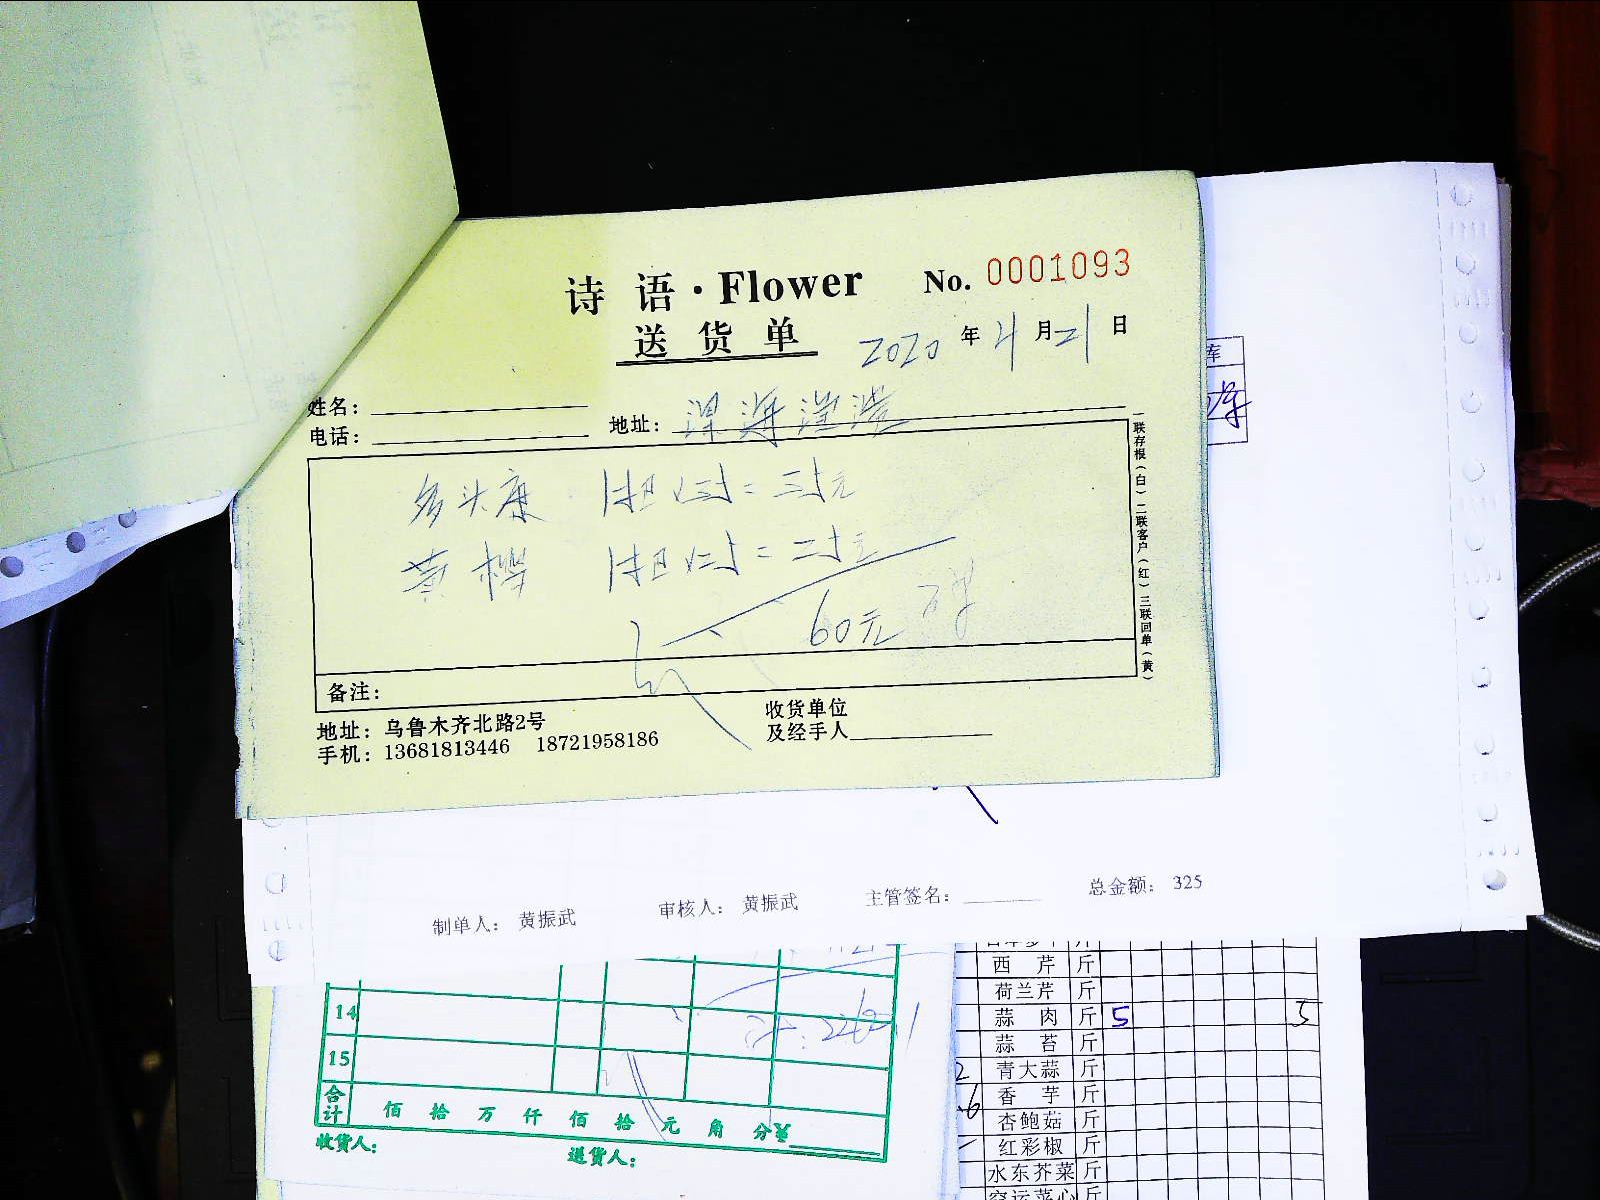 诗 语·Flower No. 0001093
送 货 单 2020 年 4 月 21 日
库
姓名：
电话： 地址：
多头康 1扎
黄 1扎
60元
一联存根（白）二联客户（红）三联回单（黄）
备注：
地址：乌鲁木齐北路2号 收货单位
手机：13681813446 18721958186 及经手人
制单人： 黄振武 审核人： 黄振武 主管签名： 总金额： 325
14
15
合计 佰 拾 万 仟 佰 拾 元 角 分¥
收货人： 送货人：
西 芹 斤
荷兰芹 斤
蒜 肉 斤 5 5
蒜 苔 斤
2 青大蒜 斤
6 香 芋 斤
杏鲍菇 斤
红彩椒 斤
水东芥菜 斤